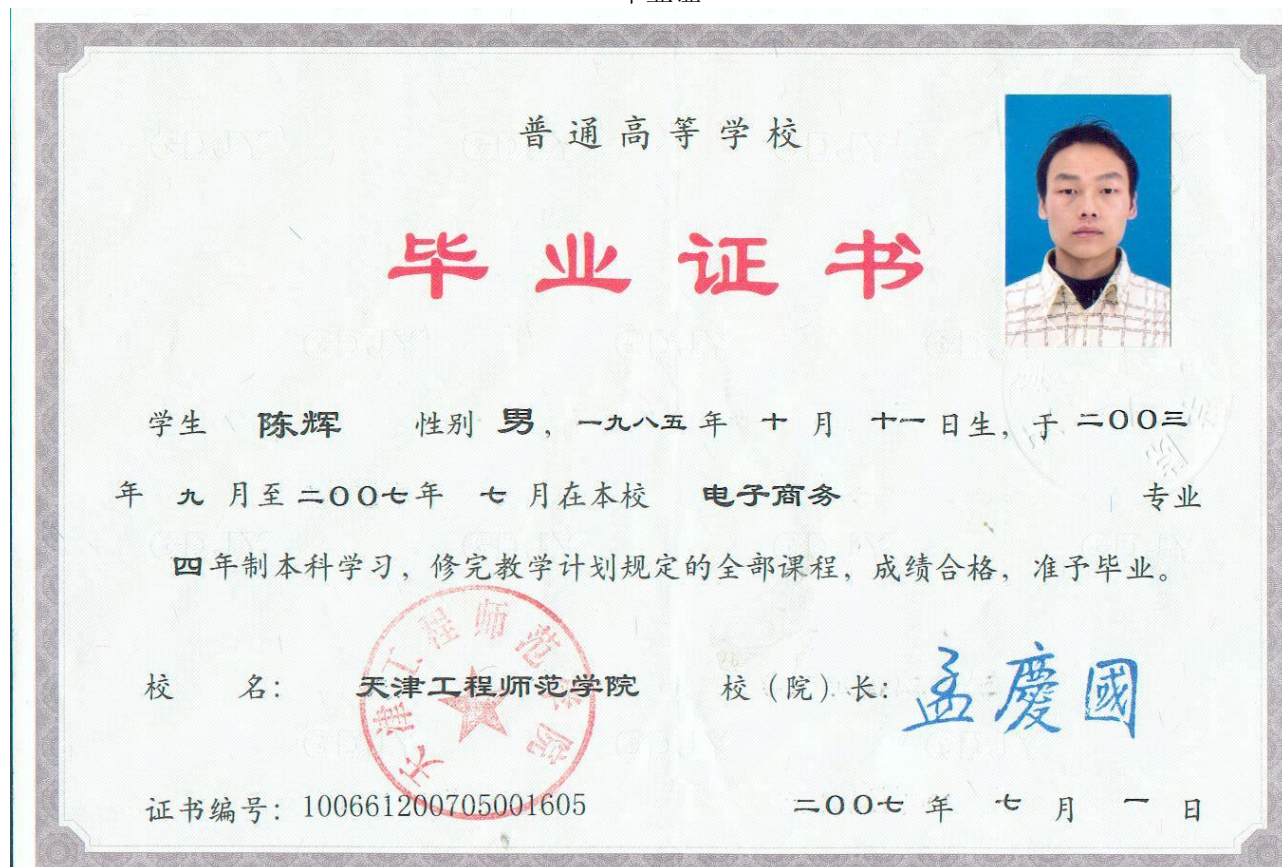 普通高等学校
毕业证书
学生 陈辉 性别 男，一九八五年 十 月 十一 日生，于 二〇〇三
年 九 月至 二〇〇七年 七 月在本校 电子商务 专业
四年制本科学习，修完教学计划规定的全部课程，成绩合格，准予毕业。
校 名： 天津工程师范学院 校（院）长：孟慶國
天津工程师范学院
证书编号：100661200705001605 二〇〇七 年 七 月 一 日